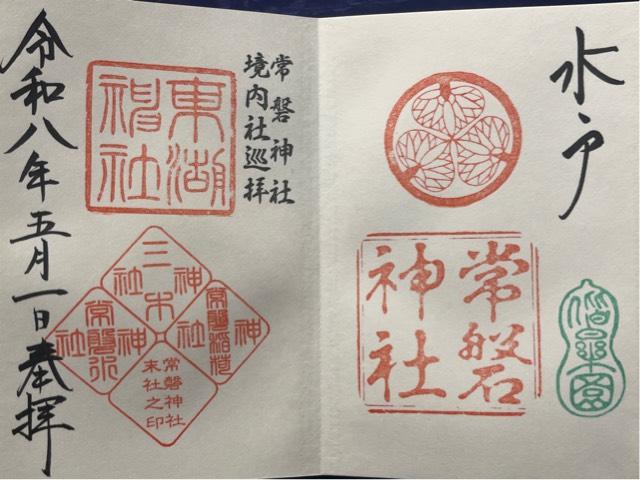 水戸
常磐
神社
偕樂園
常磐神社
境内社巡拝
東湖
神社
三木
神社
常磐稲荷
神社
常磐神社
末社之印
令和八年五月一日奉拝